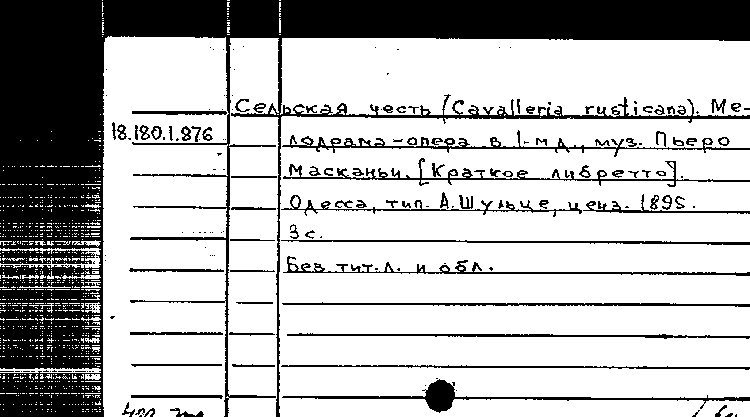 Сельская честь (Cavalleria rusticana). Ме-
18.180.1.876
лодрама-опера в 1-м д., муз. Пьеро
Масканьи. [Краткое либретто].
Одесса, тип. А. Шульце, ценз. 1895.
3 с.
Без тит. л. и обл.